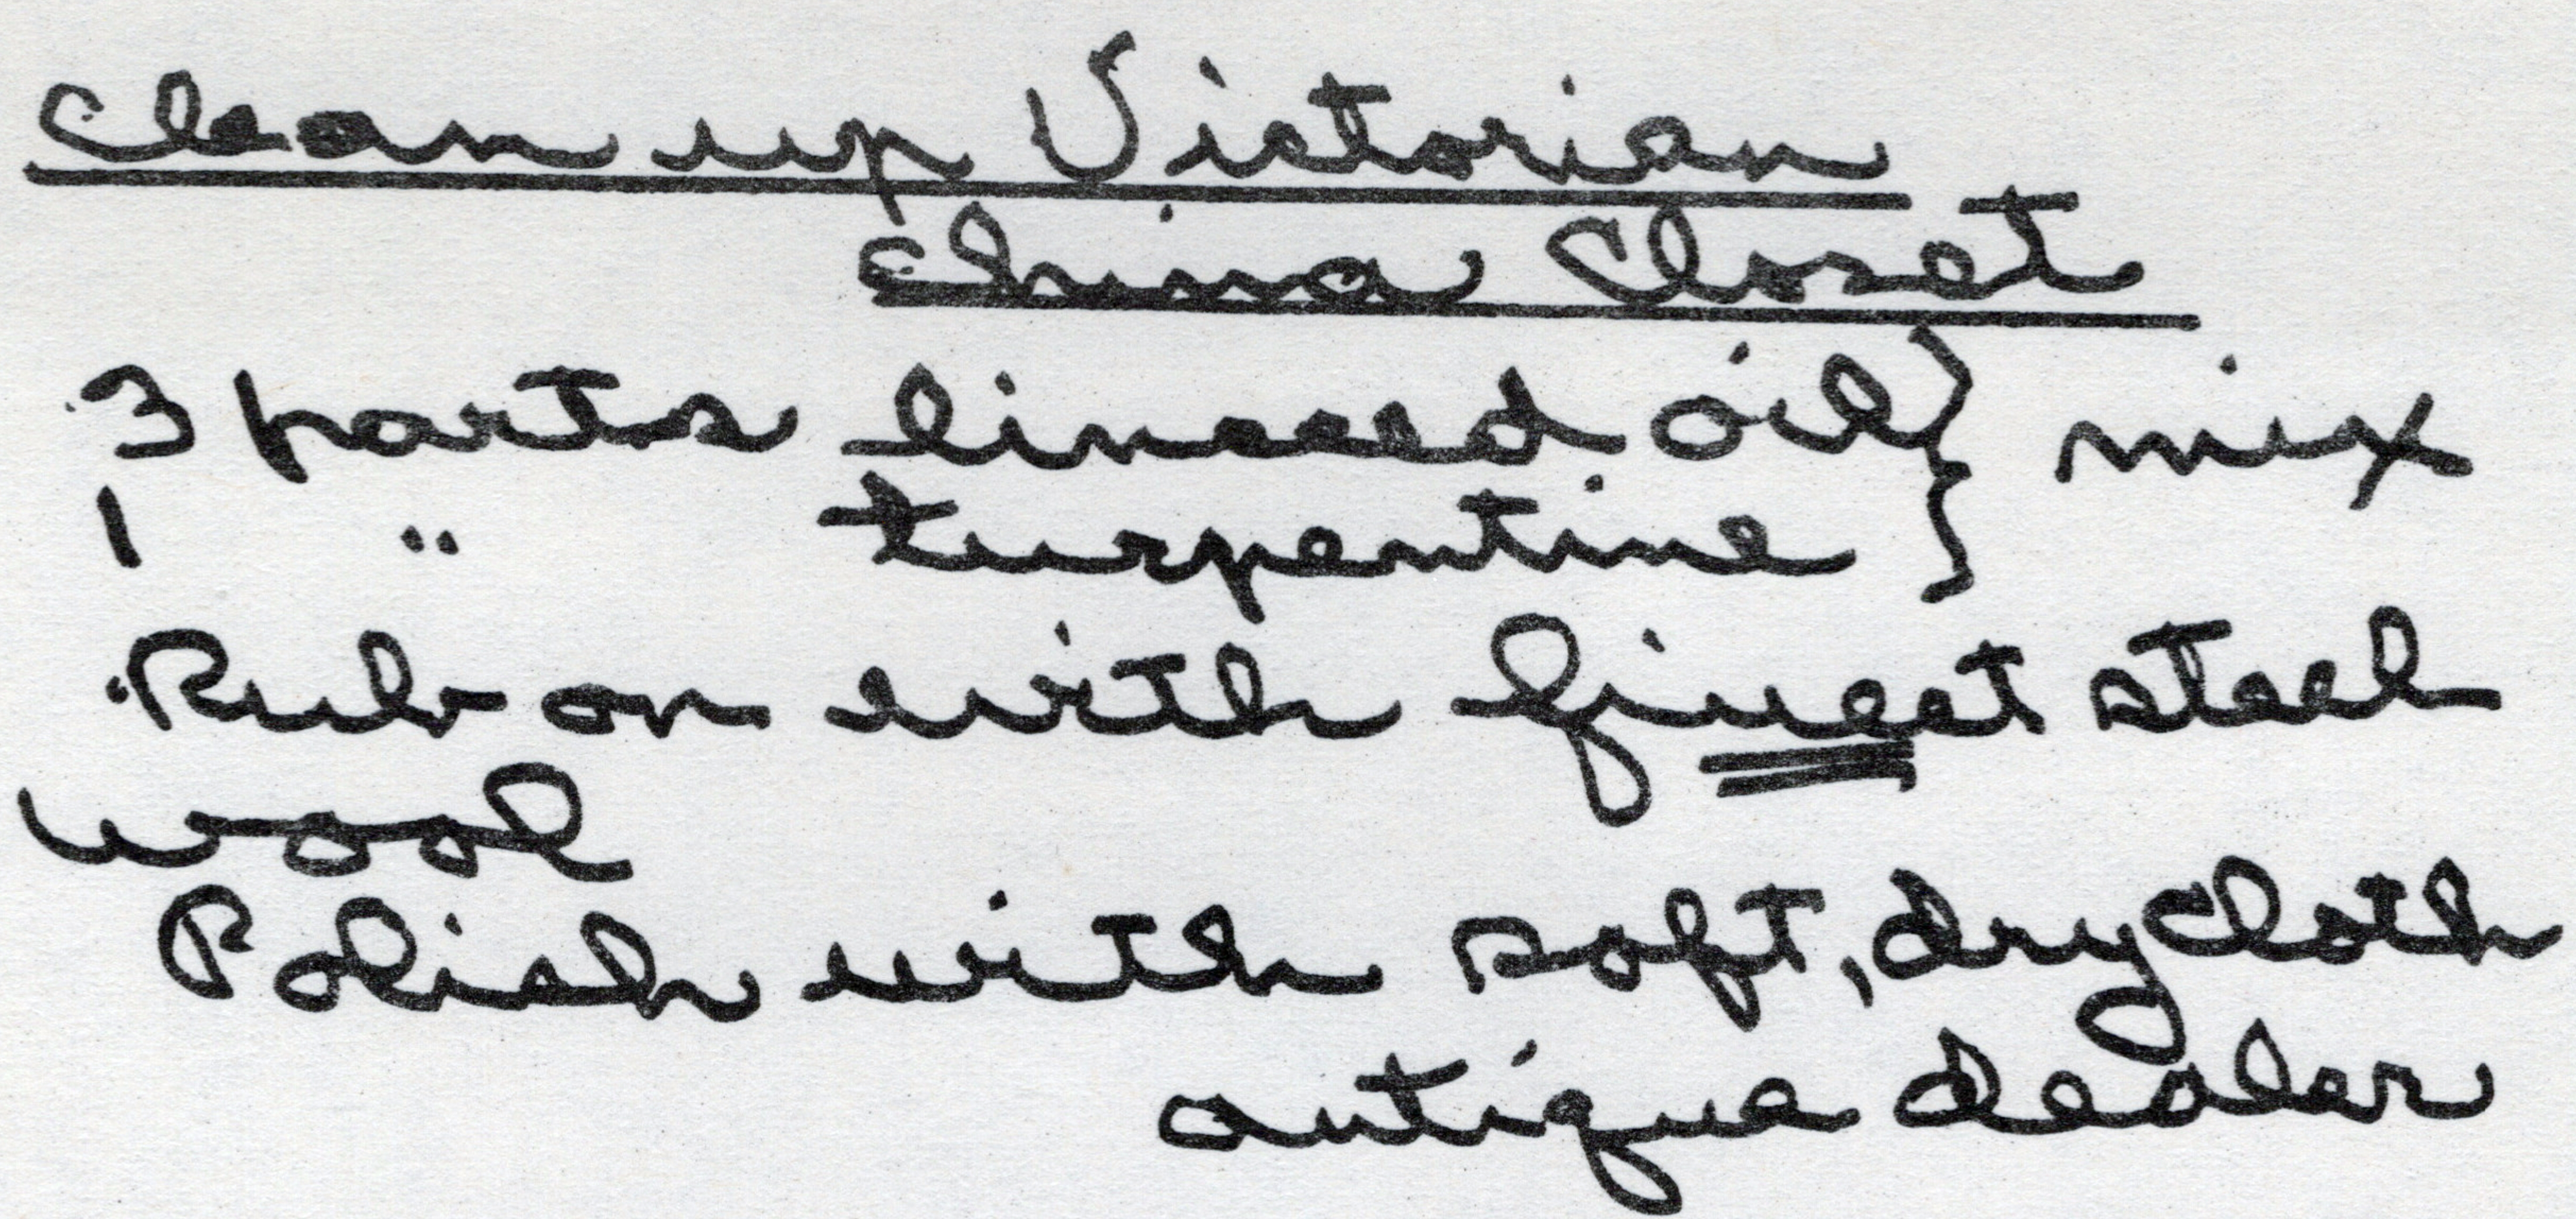 Clean up Victorian
China Closet
3 parts linseed oil } mix
1 " turpentine }
Rub on with finest steel
wool
Polish with soft, dry cloth
antique dealer